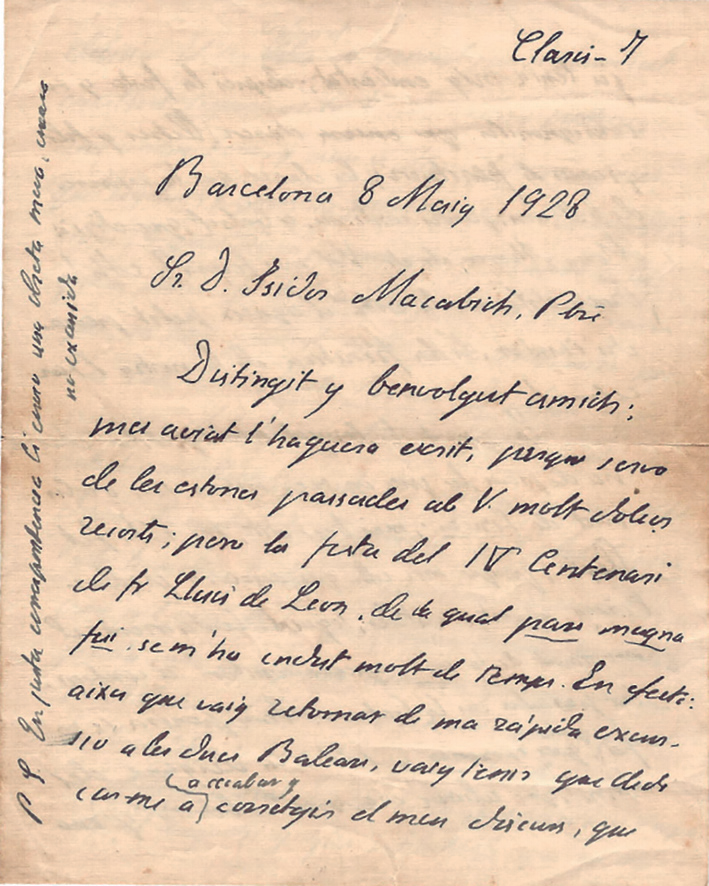 Claris-7
Barcelona 8 Maig 1928
Sr. D. Isidor Macabich, Pbre
Distingit y benvolgut amich:
mes aviat l'haguera escrit, perque servo
de les estones passades ab V. molt dolços
recorts; pero la festa del IV Centenari
de fr Lluis de Leon, de la qual pars magna
fui, se m'ha endut molt de temps. En efecte:
aixis que vaig retornar de ma rápida excur-
sio a les dues Balears, vaig tenir que dedi
car-me a acabar y corretgir el meu discurs, que
P S En justa correspondencia li envio una obreta meva, encara
no exanida